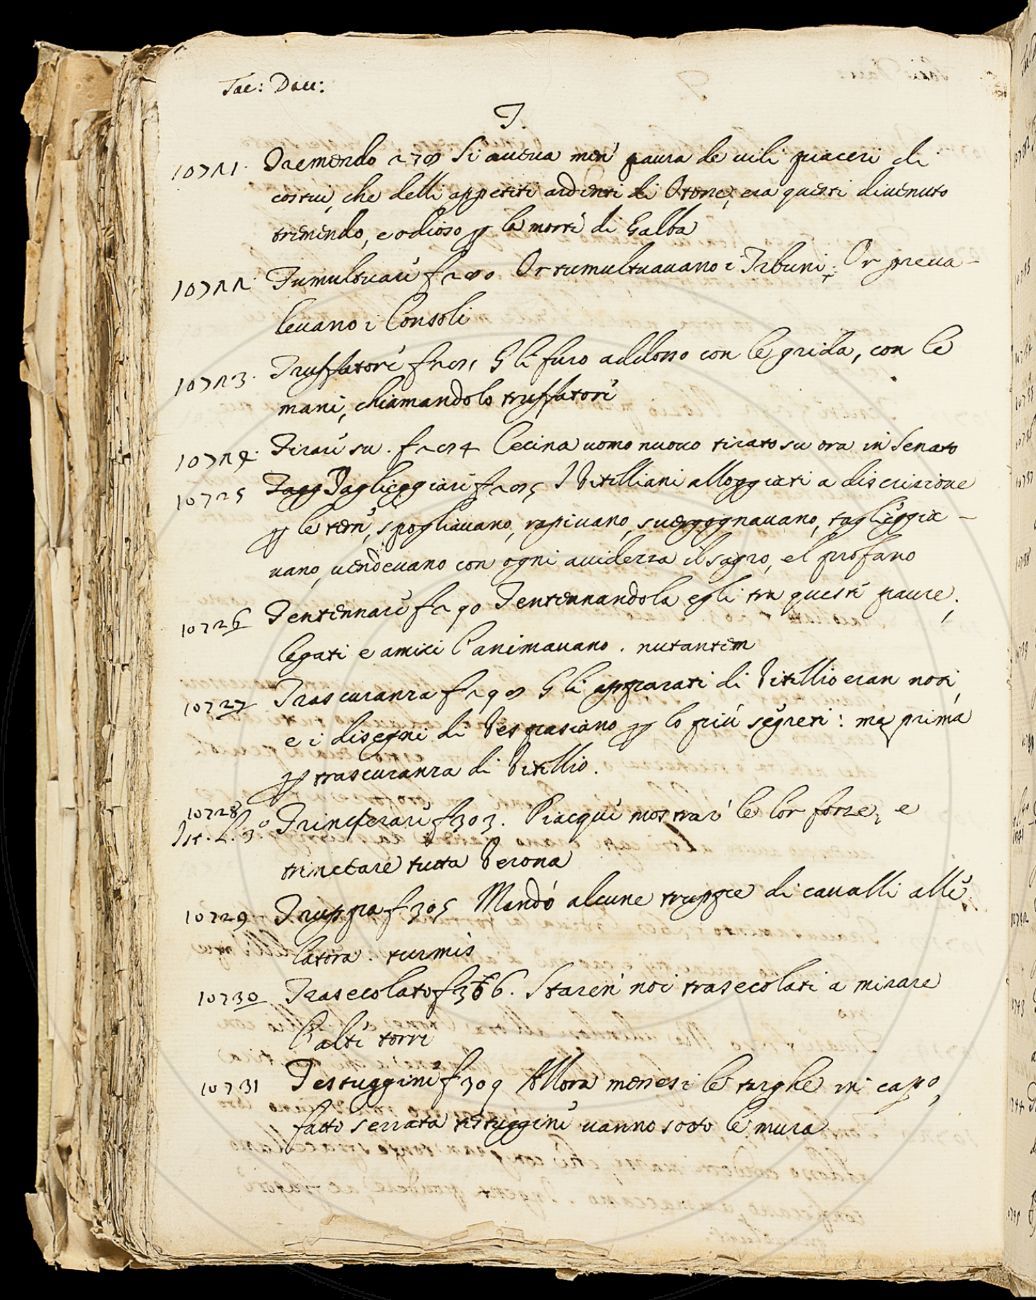 Tac: Dav:
T.
10721. Tremendo 278 Si aveva men paura de vili piaceri di
costui, che delli appetiti ardenti di Otone; era questi divenuto
tremendo, e odioso p la morte di Galba
10722. Tumultuare f 280. Or tumultuavano i Tribuni; Or preva-
levano i Consoli
10723. Truffatore f 281 Gli furo addosso con le grida, con le
mani, chiamandolo truffatore
10724. Tirare su. f 284 Cecina uomo nuovo tirato su ora in Senato
10725 Taglieggiare f 285 I Vitelliani alloggiati a discrizione
p le terre, spogliavano, rapivano, svergognavano, taglieggia-
vano, vendevano con ogni avidezza il sagro, e'l profano
10726 Tentennare f 290 Tentennandola egli tra queste paure;
legati e amici l'animavano. nutantem
10727 Trascuranza f 298 Gli apparati di Vitellio eran noti,
e i disegni di Vespasiano p lo più segreti: ma prima
p trascuranza di Vitellio.
10728
Ist. L. 3o Trincerare f 303. Piacque mostrare le lor forze, e
trincerare tutta Verona
10729 Truppa f 305 Mandò alcune truppe di cavalli alle
latora. turmis
10730 Trasecolato f 306. Staren noi trasecolati a mirare
l'alte torri
10731 Testuggine f 309 Allora messesi le targhe in capo,
fatto serrata testuggine vanno sotto le mura